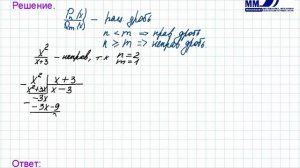 Решение.
Pn(x)
Pm(x) – рац. дробь
n < m ⇒ прав. дробь
n ≥ m ⇒ неправ. дробь
x²
x+3 – неправ., т.к. n=2
m=1
– x² | x+3
x²+3x | x–3
–3x
– –3x–9
Ответ: